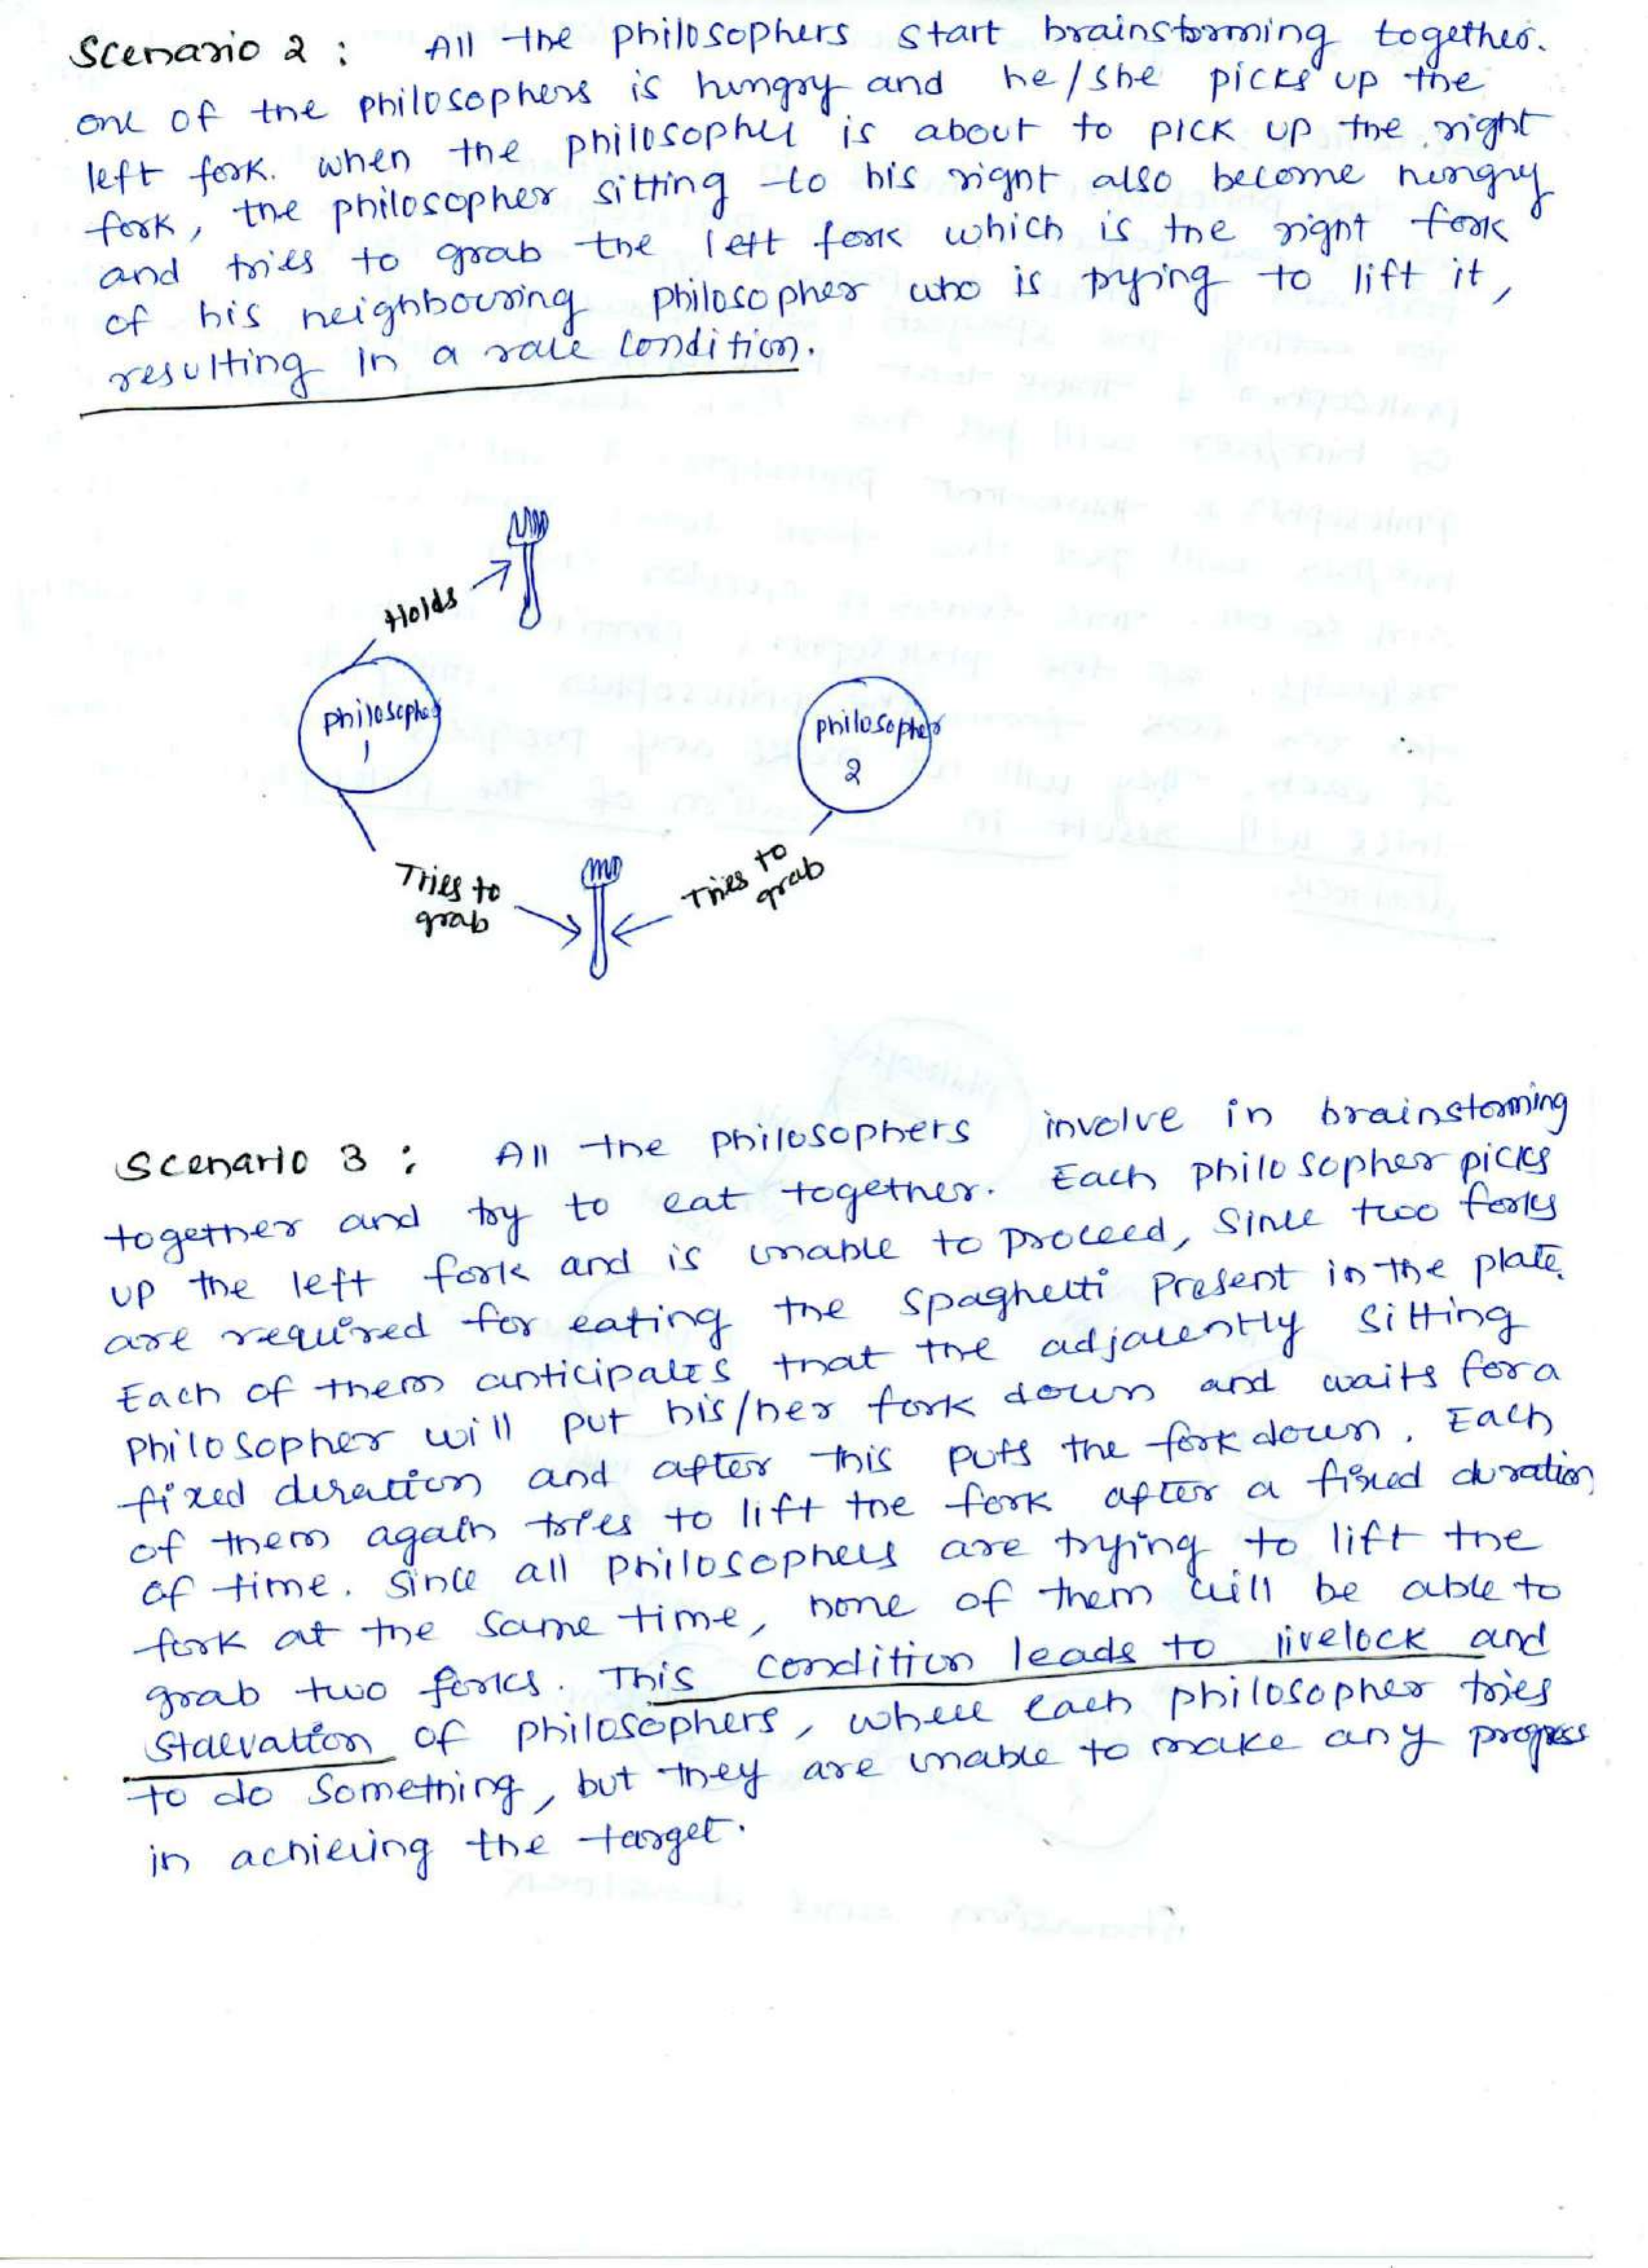 Scenario 2 : All the philosophers start brainstorming together.
one of the philosophers is hungry and he/she picks up the
left fork. when the philosopher is about to pick up the right
fork, the philosopher sitting to his right also become hungry
and tries to grab the left fork which is the right fork
of his neighbouring philosopher who is trying to lift it,
resulting in a race condition.
Holds
philosopher
1
philosopher
2
Tries to
grab
Tries to
grab
Scenario 3 : All the philosophers involve in brainstorming
together and try to eat together. Each philosopher picks
up the left fork and is unable to proceed, since two forks
are required for eating the spaghetti present in the plate.
Each of them anticipates that the adjacently sitting
philosopher will put his/her fork down and waits for a
fixed duration and after this puts the fork down. Each
of them again tries to lift the fork after a fixed duration
of time. Since all philosophers are trying to lift the
fork at the same time, none of them will be able to
grab two forks. This condition leads to livelock and
starvation of philosophers, where each philosopher tries
to do something, but they are unable to make any progress
in achieving the target.